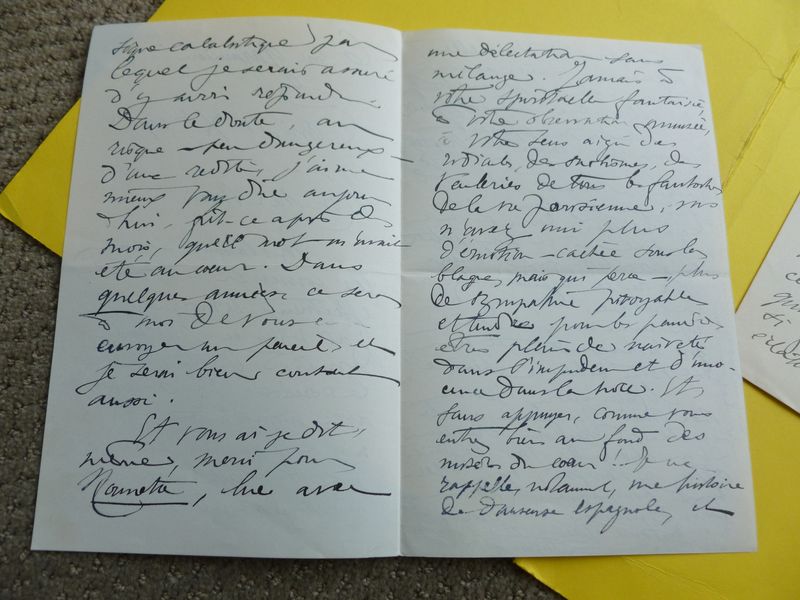 signe cabalistique) par
lequel je serais assuré
d'y avoir répondu.
Dans le doute, au
risque – peu dangereux –
d'une redite, j'aime
mieux vous dire aujour
d'hui, fût-ce après des
mois, quel mot m'avait
été au cœur. Dans
quelques années ce sera
à moi de vous en
envoyer un pareil et
je serai bien content
aussi.
Et vous ai-je dit,
même, merci pour
Nonnette, lue avec
une délectation sans
mélange. Jamais à
votre spirituelle fantaisie,
à votre observation amusée,
à votre sens aigu des
des snobismes, des
veuleries de tous les fantoches
de la vie parisienne, vous
n'avez uni plus
d'émotion – cachée sous les
blagues mais qui perce – plus
de sympathie pitoyable
et tendre pour les pauvres
êtres pleins de naïveté
dans l'impudeur et d'inno-
cence dans la noce. Et
sans appuyer, comme vous
entrez bien au fond des
misères du cœur! Je me
rappelle, notamment, une histoire
de danseuse espagnole, et